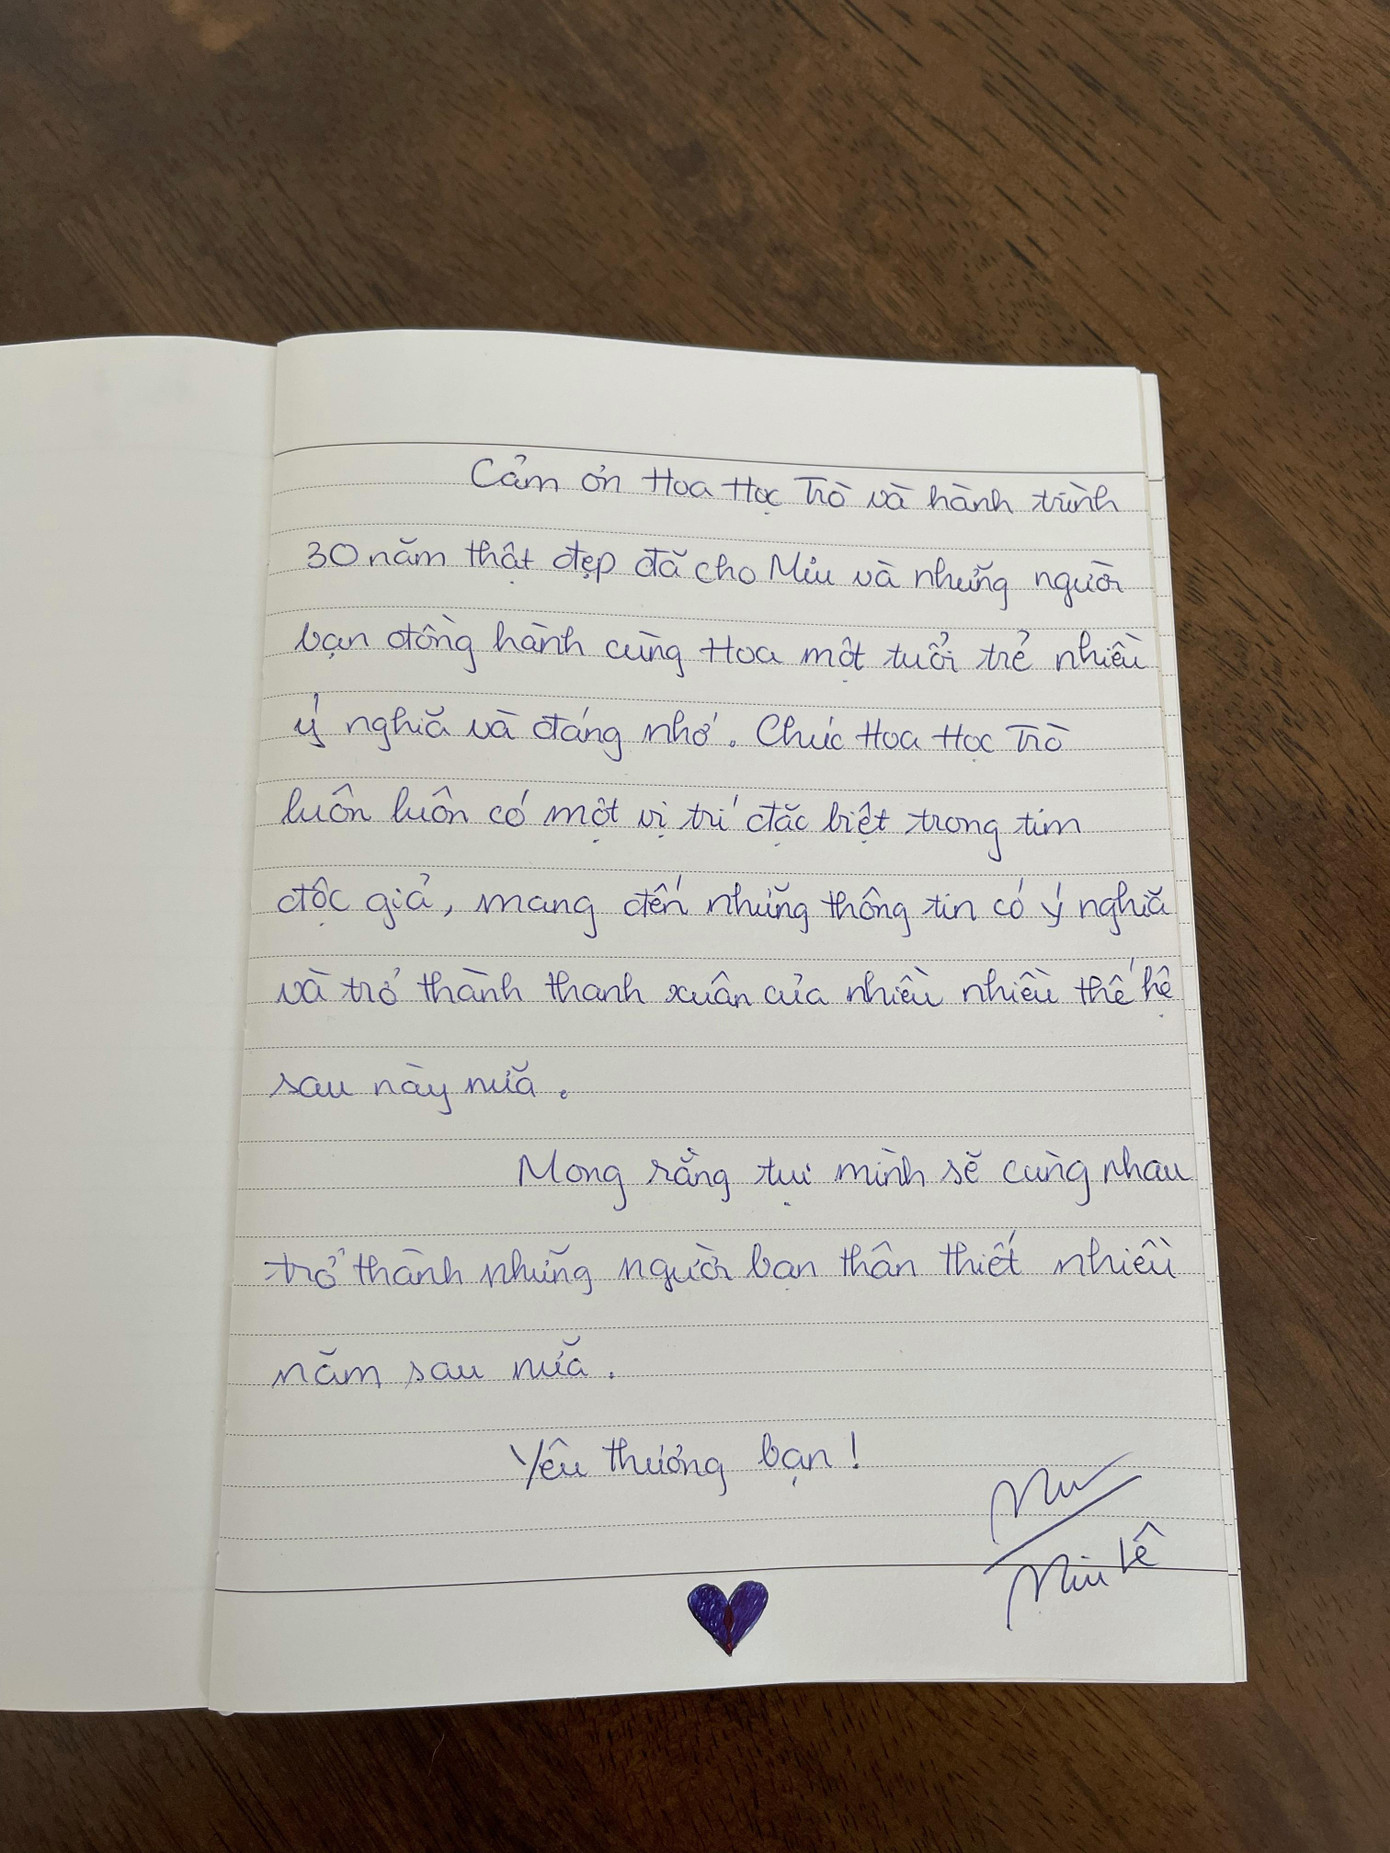 Cảm ơn Hoa Học Trò và hành trình
30 năm thật đẹp đã cho Miu và những người
bạn đồng hành cùng Hoa một tuổi trẻ nhiều
ý nghĩa và đáng nhớ. Chúc Hoa Học Trò
luôn luôn có một vị trí đặc biệt trong tim
độc giả, mang đến những thông tin có ý nghĩa
và trở thành thanh xuân của nhiều nhiều thế hệ
sau này nữa.
Mong rằng tụi mình sẽ cùng nhau
trở thành những người bạn thân thiết nhiều
năm sau nữa.
Yêu thương bạn!
Miu Lê